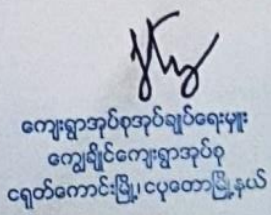 ကျေးရွာအုပ်စုအုပ်ချုပ်ရေးမှူး
ကျွဲချိုင်ကျေးရွာအုပ်စု
ငရုတ်ကောင်းမြို့၊ ငပုတောမြို့နယ်